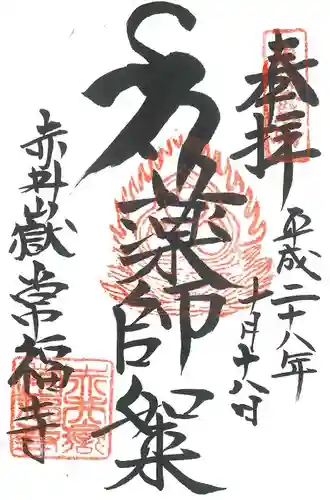 奉拝
平成二十八年
十月十八日
薬師如来
赤井嶽常福寺
赤井嶽